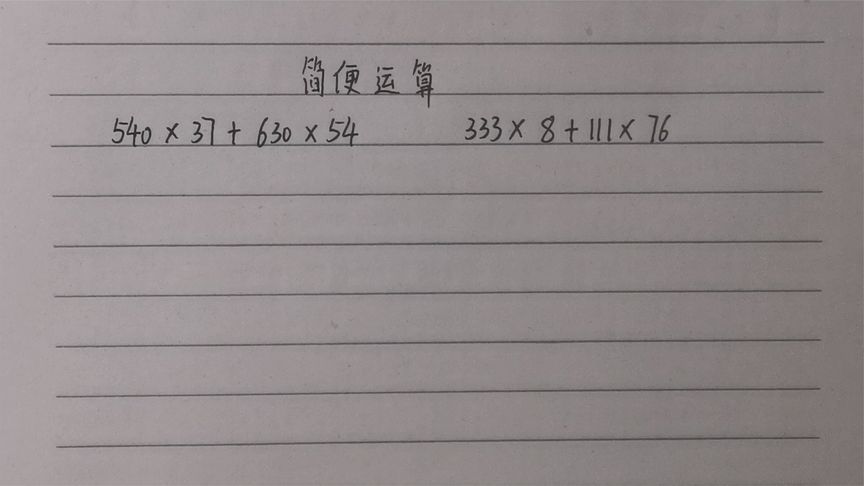 简便运算
540 × 37 + 630 × 54 333 × 8 + 111 × 76